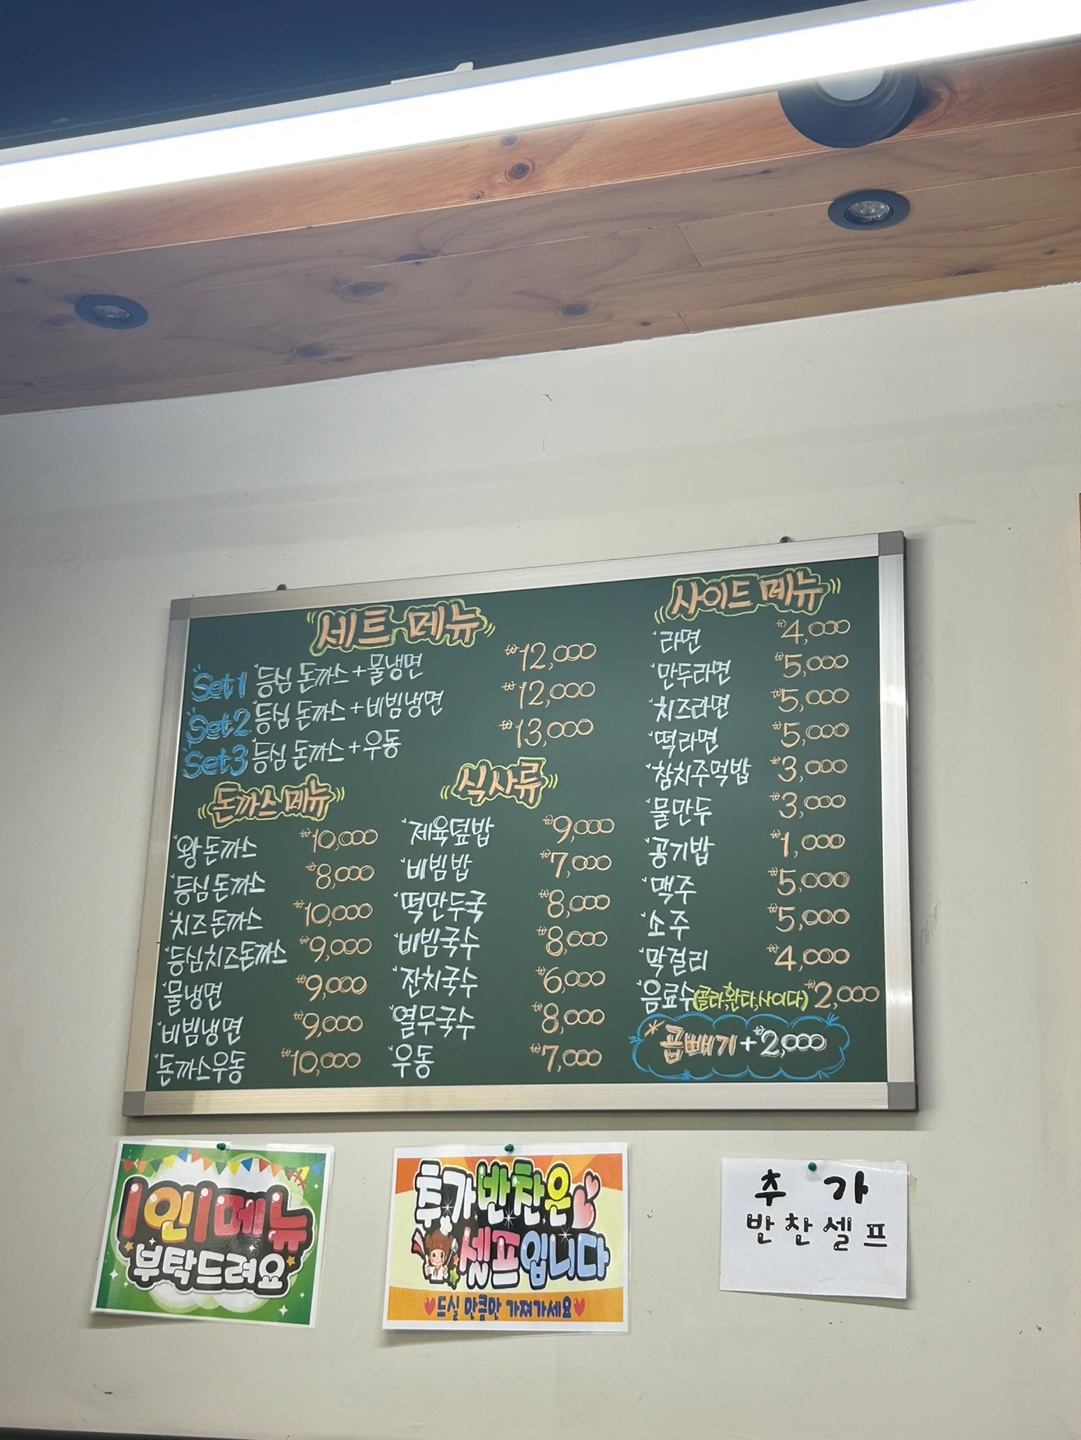 세트 메뉴
Set1 등심 돈까스+물냉면 ₩12,000
Set2 등심 돈까스+비빔냉면 ₩12,000
Set3 등심 돈까스+우동 ₩13,000
돈까스 메뉴
왕돈까스 ₩10,000
등심돈까스 ₩8,000
치즈돈까스 ₩10,000
등심치즈돈까스 ₩9,000
물냉면 ₩9,000
비빔냉면 ₩9,000
돈까스우동 ₩10,000
식사류
제육덮밥 ₩9,000
비빔밥 ₩7,000
떡만두국 ₩8,000
비빔국수 ₩8,000
잔치국수 ₩6,000
열무국수 ₩8,000
우동 ₩7,000
사이드 메뉴
라면 ₩4,000
만두라면 ₩5,000
치즈라면 ₩5,000
떡라면 ₩5,000
참치주먹밥 ₩3,000
물만두 ₩3,000
공기밥 ₩1,000
맥주 ₩5,000
소주 ₩5,000
막걸리 ₩4,000
음료수(콜라,환타,사이다) ₩2,000
*곱빼기+₩2,000
1인1메뉴
부탁드려요
추가반찬은
셀프입니다
♥드실 만큼만 가져가세요♥
추가
반찬셀프